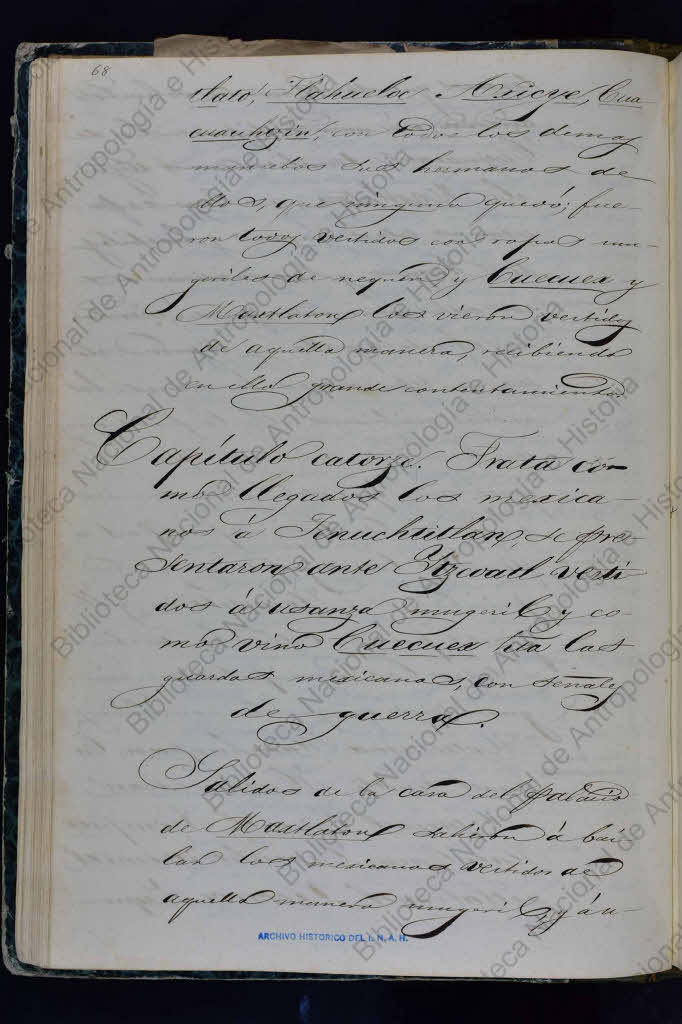 68
tlato, Tlahueloc, Axicye, Cua
cuauhtzin, con todos los demas
mancebos sus hermanos de
ellos, que ninguno quedó; fue
ron todos vestidos con ropas mu-
geriles de nequen, y Cuecuex y
Maxtlaton los vieron vestidos
de aquella manera, recibiendo
en ello grande contentamiento.
Capítulo catorze. Trata có-
mo llegados los mexica-
nos á Tenuchtitlan, se pre-
sentaron ante Ytzcoatl vesti
dos á usanza mugeril y co-
mo vino Cuecuex hta las
guardas mexicanas, con señales
de guerra.
Salidos de la casa del palacio
de Maxtlaton, salieron á bai
lar los mexicanos vestidos de
aquella manera mugeril, y á u-
ARCHIVO HISTORICO DEL I. N. A. H.
Biblioteca Nacional de Antropología e Historia